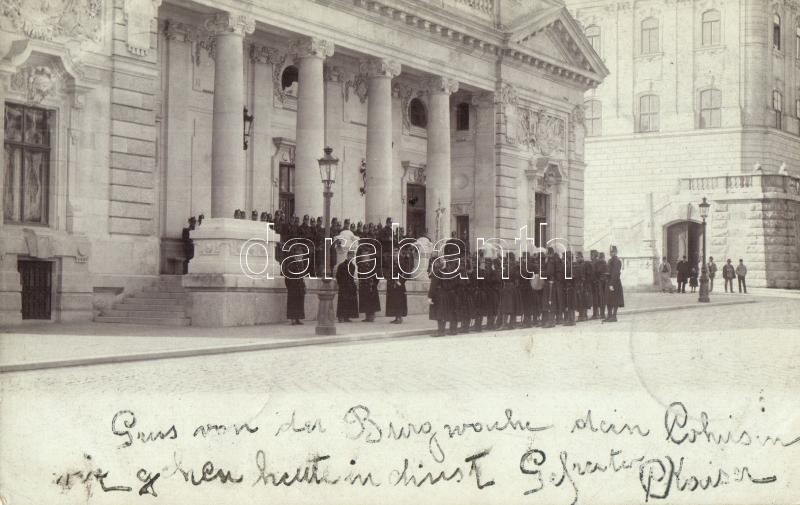 darabanth.com
Grus von der Burgwache dein Cohusin
wir gehen heute in dinst Gefreiter Kaiser